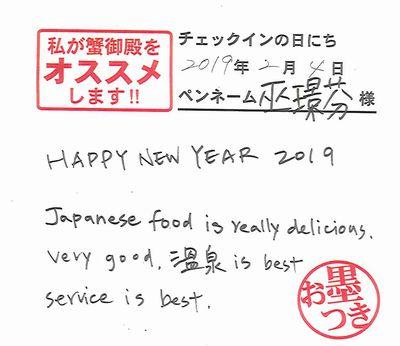 私が蟹御殿を
オススメ
します!!
チェックインの日にち
2019年 2月 4日
ペンネーム 巫璟芬 様
HAPPY NEW YEAR 2019
Japanese food is really delicious.
very good. 温泉 is best
service is best.
お墨
つき